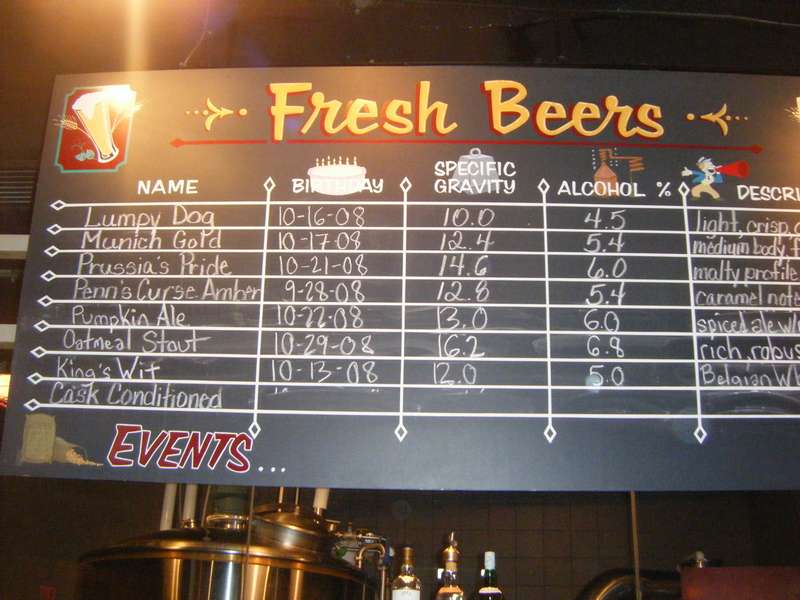 Fresh Beers
NAME BIRTHDAY SPECIFIC GRAVITY ALCOHOL % DESCRI
Lumpy Dog 10-16-08 10.0 4.5 light, crisp,
Munich Gold 10-17-08 12.4 5.4 medium body, f
Prussia's Pride 10-21-08 14.6 6.0 malty profile
Penn's Curse Amber 9-28-08 12.8 5.4 caramel note
Pumpkin Ale 10-22-08 13.0 6.0 spiced ale w/
Oatmeal Stout 10-29-08 16.2 6.8 rich, robus
King's Wit 10-13-08 12.0 5.0 Belgian Wh
Cask Conditioned
EVENTS...